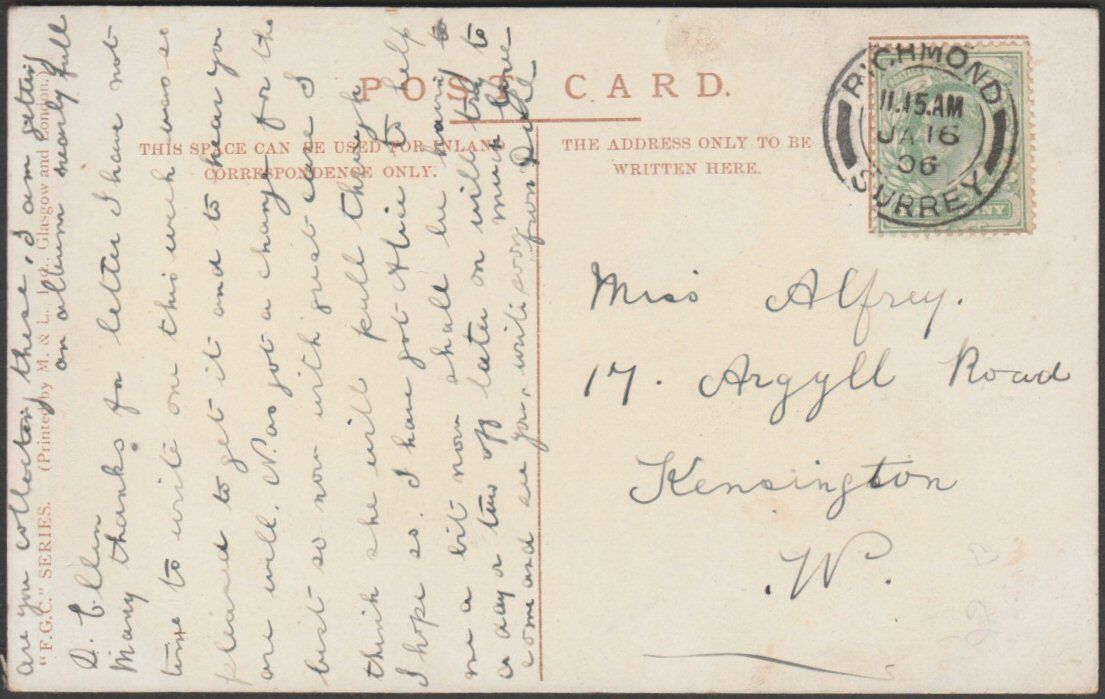 POST CARD.
THIS SPACE CAN BE USED FOR INLAND
CORRESPONDENCE ONLY.
THE ADDRESS ONLY TO BE
WRITTEN HERE.
"F.G.C." SERIES. (Printed by M. & L., Ltd., Glasgow and London.)
RICHMOND
11.15.AM
JA 16
06
SURREY
NY
Miss Alfrey.
17. Argyll Road
Kensington
.W.
are you collecting these, I am getting
an album nearly full
D. Ellen
Many thanks for letter I have not
time to write one this week was so
pleased to get it and to hear you
are well. N. as got a change for the
best so now with great care I
think she will pull through
I hope so. I have got Alice to help
me a bit now shall be having
a day or two off later on will try to
come and see you, write soon much love
yours